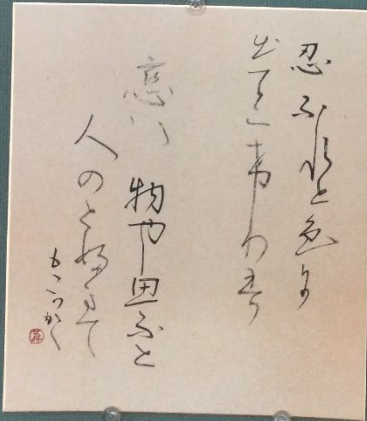 忍ふれと色に
出てにけりわか
恋ハ 物や思ふと
人のとふまて